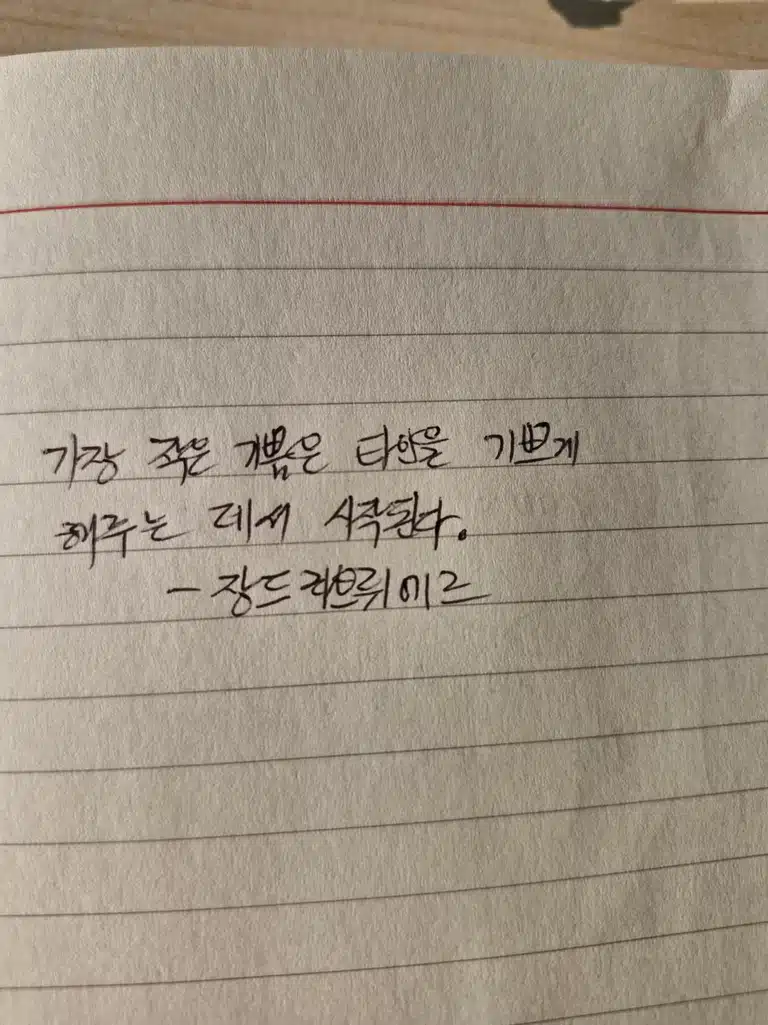 가장 작은 기쁨은 타인을 기쁘게
해주는 데서 시작된다.
- 장드라브뤼에르